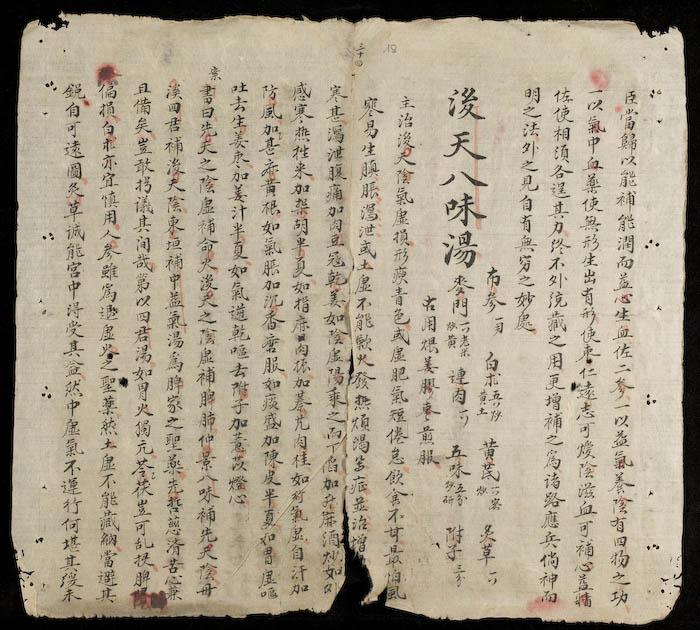 臣當歸以能補能潤而益心生血佐二參一以益氣養陰有四物之功
一以氣中血藥使無形生出有形使棗仁遠志可煖陰滋血可補心益精
佐使相須各逞其力终不外統藏之用更增補之為諸路應兵倘神而
明之法外之見自有無窮之妙處
後天八味湯
布參 白朮 黄土 黄芪 炙草
麥門 連肉 五味 附子
古用煨姜膠棗煎服
主治後天陰氣虛損形瘐青色或虛肥氣短倦怠飲食不甘最怕風
寒易生䐜脹瀉泄或土虛不能歛火發熱煩渴等症並治增
寒甚瀉泄腹痛加肉豆蔻乾姜如陰虛陽乘之而下陷加升麻酒炒如久
感寒熱往來加柴胡半夏如指麻肉振加秦艽肉桂如衛氣虛自汗加
防風加甚黄根如氣脹加沉香磨服如痰盛加陳皮半夏如胃虛嘔
吐去生姜棗加姜汁半夏如氣逆乾嘔去附子加薏苡燈心
案
書曰先天之陰虛補命火後天之陰虛補脾肺仲景八味補先天陰丹
溪四君補後天陰東垣補中益氣湯為脾家之聖藥先哲慈濟苦心兼
且備矣豈敢扬議其间哉第以四君湯如胃火獨亢苓茯豈可乱投脾
偏損白朮亦宜慎用人參雖為退虛勞之聖藥然土虛不能藏納當遜其
鋭自可遠圖炙草誠能宮中得受其益然中虛氣不運行何堪其緩未
三十四
18